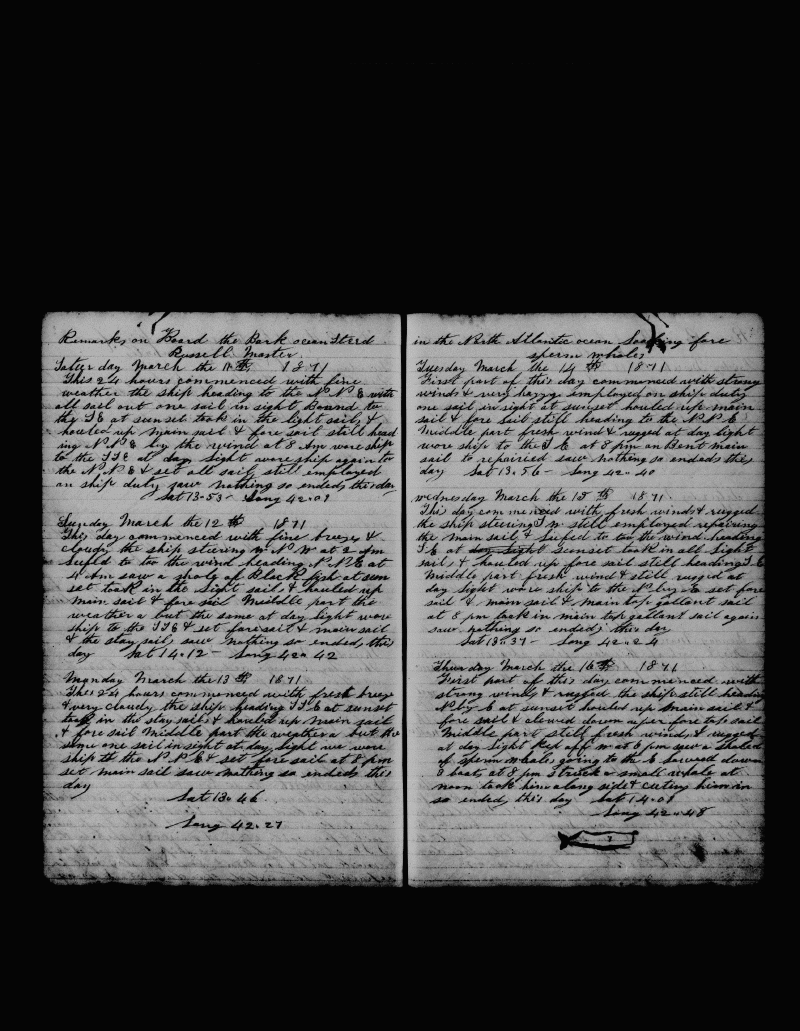 Remarks on Board the Bark ocean Sterd
Russell Master
Satterday March the 11th 1871
This 24 hours commenced with fine
weather the ship heading to the N N E with
all sail out one sail in sight Bound to
the S E at sunset took in the light sails &
houled up main sail & fore sail still head
ing N N E by the wind at 8 Am wore ship
to the S S E at day light wore ship again to
the N N E & set all sail still employed
on ship duty saw nothing so ended this day
Lat 13-53- Long 42.09
Sunday March the 12th 1871
This day commenced with fine breeze &
cloudy the ship stering W N W at 2 Am
lufed to too the wind heading N N E at
4 Am saw a shole of Black fish at sun
set took in the light sail & houled up
main sail & fore sail Middle part the
weather a but the same at day light wore
ship to the S S E & set fore sail & main sail
& the stay sail saw nothing so ended this
day Lat 14.12- Long 42.. 42
Monday March the 13th 1871
This 24 hours commenced with fresh breeze
& very cloudy the ship heading S S E at sunset
took in the stay sails & houled up main sail
& fore sail Middle part the weather a but the
same one sail in sight at day light we wore
ship to the N N E & set fore sail at 8 pm
set main sail saw nothing so ended this
day
Lat 13.. 46
Long 42.27
in the North Atlantic ocean Looking fore
sperm whales
Tuesday March the 14th 1871
First part of this day commenced with strong
winds & very hazy employed on ship duty
one sail in sight at sunset houled up main
sail & fore sail still heading to the N N E
Middle part fresh wind & rugged at day light
wore ship to the S E at 8 pm on Bent main
sail to repairied saw nothing so ended this
day Lat 13.56- Long 42.. 40
wednesday March the 15th 1871
This day commenced with fresh winds & rugged
the ship stering S W still employed repairing
the main sail & lufed to too the wind heading
S E at day light sunset took in all light
sail & houled up fore sail still heading S E
Middle part fresh wind & still rugged at
day light wore ship to the N by E set fore
sail & main sail & main top gallant sail
at 8 pm took in main top gallant sail again
saw nothing so ended this day
Lat 13..37- Long 42..24
Thursday March the 16th 1871
First part of this day commenced with
strong winds & rugged the ship still heading
N by E at sunset houled up main sail &
fore sail & clewed down uper fore top sail
Middle part still fresh winds & rugged
at day light kep off W at 6 pm saw a shole
of sperm whales going to the E lowered down
3 boats at 8 pm Struck a small whale at
noon took him along side & cuting him in
so ended this day Lat 14.08
Long 42..48